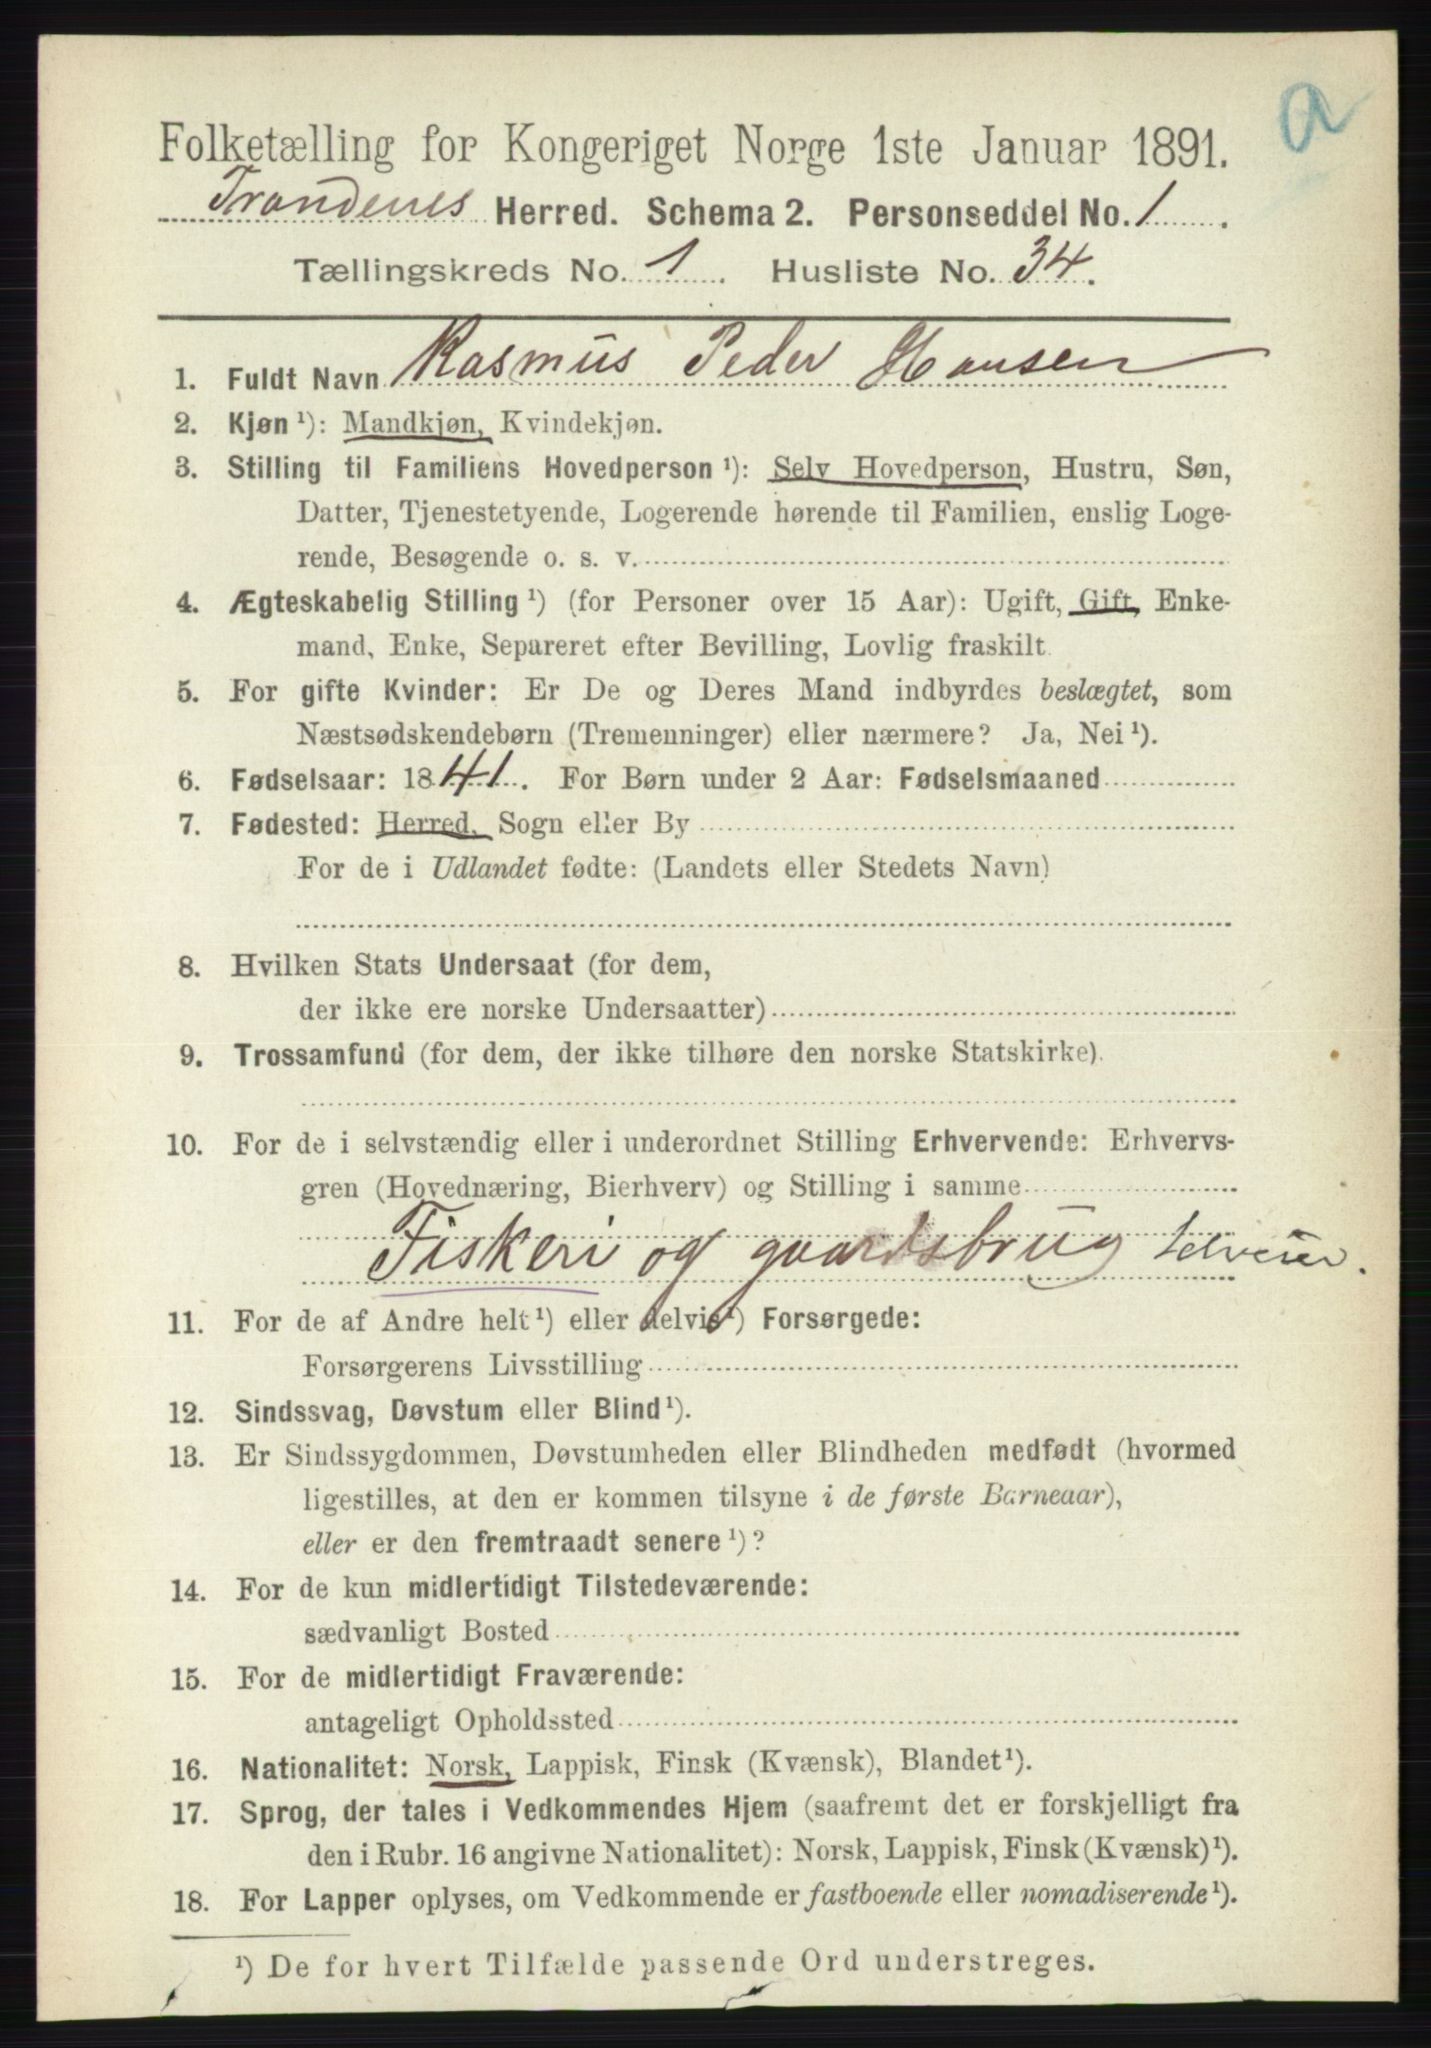 a
Folketælling for Kongeriget Norge 1ste Januar 1891.
Trondenes Herred. Schema 2. Personseddel No. 1.
Tællingskreds No. 1. Husliste No. 34.
1. Fuldt Navn Rasmus Peder Hansen
2. Kjøn ¹): Mandkjøn, Kvindekjøn.
3. Stilling til Familiens Hovedperson ¹): Selv Hovedperson, Hustru, Søn,
Datter, Tjenestetyende, Logerende hørende til Familien, enslig Loge-
rende, Besøgende o. s. v.
4. Ægteskabelig Stilling ¹) (for Personer over 15 Aar): Ugift, Gift, Enke-
mand, Enke, Separeret efter Bevilling, Lovlig fraskilt.
5. For gifte Kvinder: Er De og Deres Mand indbyrdes beslægtet, som
Næstsødskendebørn (Tremenninger) eller nærmere? Ja, Nei ¹).
6. Fødselsaar: 1841. For Børn under 2 Aar: Fødselsmaaned
7. Fødested: Herred, Sogn eller By
For de i Udlandet fødte: (Landets eller Stedets Navn)
8. Hvilken Stats Undersaat (for dem,
der ikke ere norske Undersaatter)
9. Trossamfund (for dem, der ikke tilhøre den norske Statskirke).
10. For de i selvstændig eller i underordnet Stilling Erhvervende: Erhvervs-
gren (Hovednæring, Bierhverv) og Stilling i samme
Fiskeri og gaardsbrug selveier.
11. For de af Andre helt ¹) eller delvis ¹) Forsørgede:
Forsørgerens Livsstilling
12. Sindssvag, Døvstum eller Blind ¹).
13. Er Sindssygdommen, Døvstumheden eller Blindheden medfødt (hvormed
ligestilles, at den er kommen tilsyne i de første Barneaar),
eller er den fremtraadt senere ¹)?
14. For de kun midlertidigt Tilstedeværende:
sædvanligt Bosted
15. For de midlertidigt Fraværende:
antageligt Opholdssted
16. Nationalitet: Norsk, Lappisk, Finsk (Kvænsk), Blandet ¹).
17. Sprog, der tales i Vedkommendes Hjem (saafremt det er forskjelligt fra
den i Rubr. 16 angivne Nationalitet): Norsk, Lappisk, Finsk (Kvænsk) ¹).
18. For Lapper oplyses, om Vedkommende er fastboende eller nomadiserende ¹).
¹) De for hvert Tilfælde passende Ord understreges.